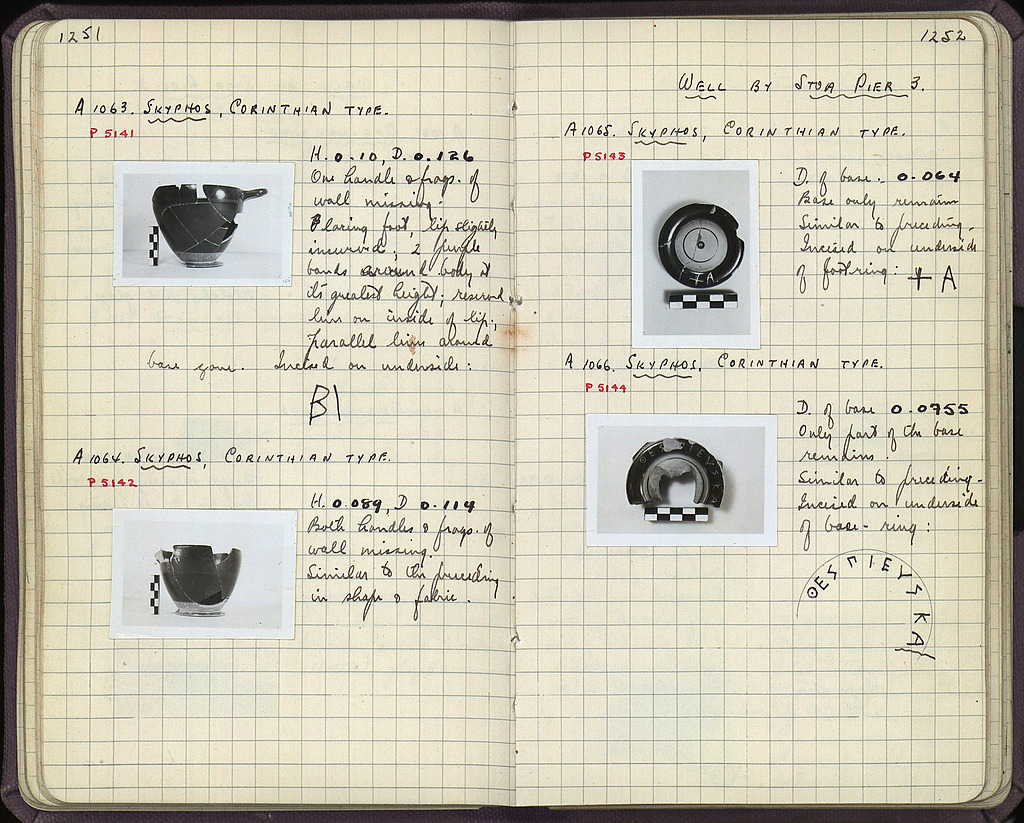 1251
A 1063. SKYPHOS, CORINTHIAN TYPE.
P 5141
H. 0.10, D. 0.126
One handle & frags. of
wall missing.
Flaring foot, lip slightly
incurved; 2 purple
bands around body at
its greatest height; reserved
line on inside of lip;
parallel lines around
base zone. Incised on underside:
BI
A 1064. SKYPHOS, CORINTHIAN TYPE.
P 5142
H. 0.089, D 0.114
Both handles & frags. of
wall missing.
Similar to the preceding
in shape & fabric.
1252
WELL BY STOA PIER 3.
A 1065. SKYPHOS, CORINTHIAN TYPE.
P 5143
D. of base. 0.064
Base only remains
Similar to preceding.
Incised on underside
of foot ring: + A
A 1066. SKYPHOS, CORINTHIAN TYPE.
P 5144
D. of base 0.0755
Only part of the base
remains.
Similar to preceding.
Incised on underside
of base-ring:
ΘΕΣΠΙΕΥΣΚΑ